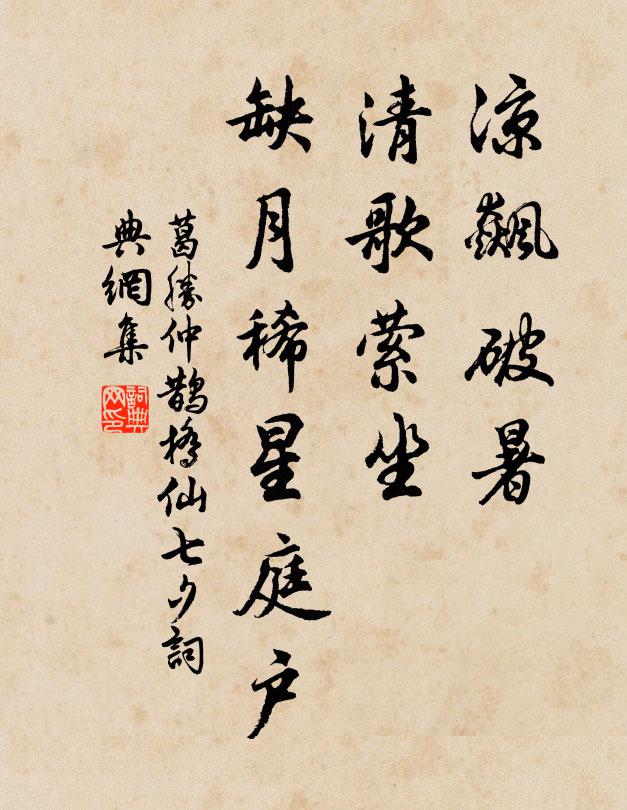 凉飙破暑
清歌萦坐
缺月稀星庭户
葛勝仲鹊橋仙七夕詞
典網集
詞典
网印